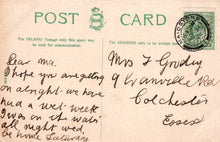 POST CARD
For INLAND Postage only this space may be used for communication
The ADDRESS only to be
Dear ma.
I hope you are getting
on alright we have
had a wet week
I was on the water
all night wed
be home Saturday
Mrs J
9 Granville Rd
Colchester
Essex